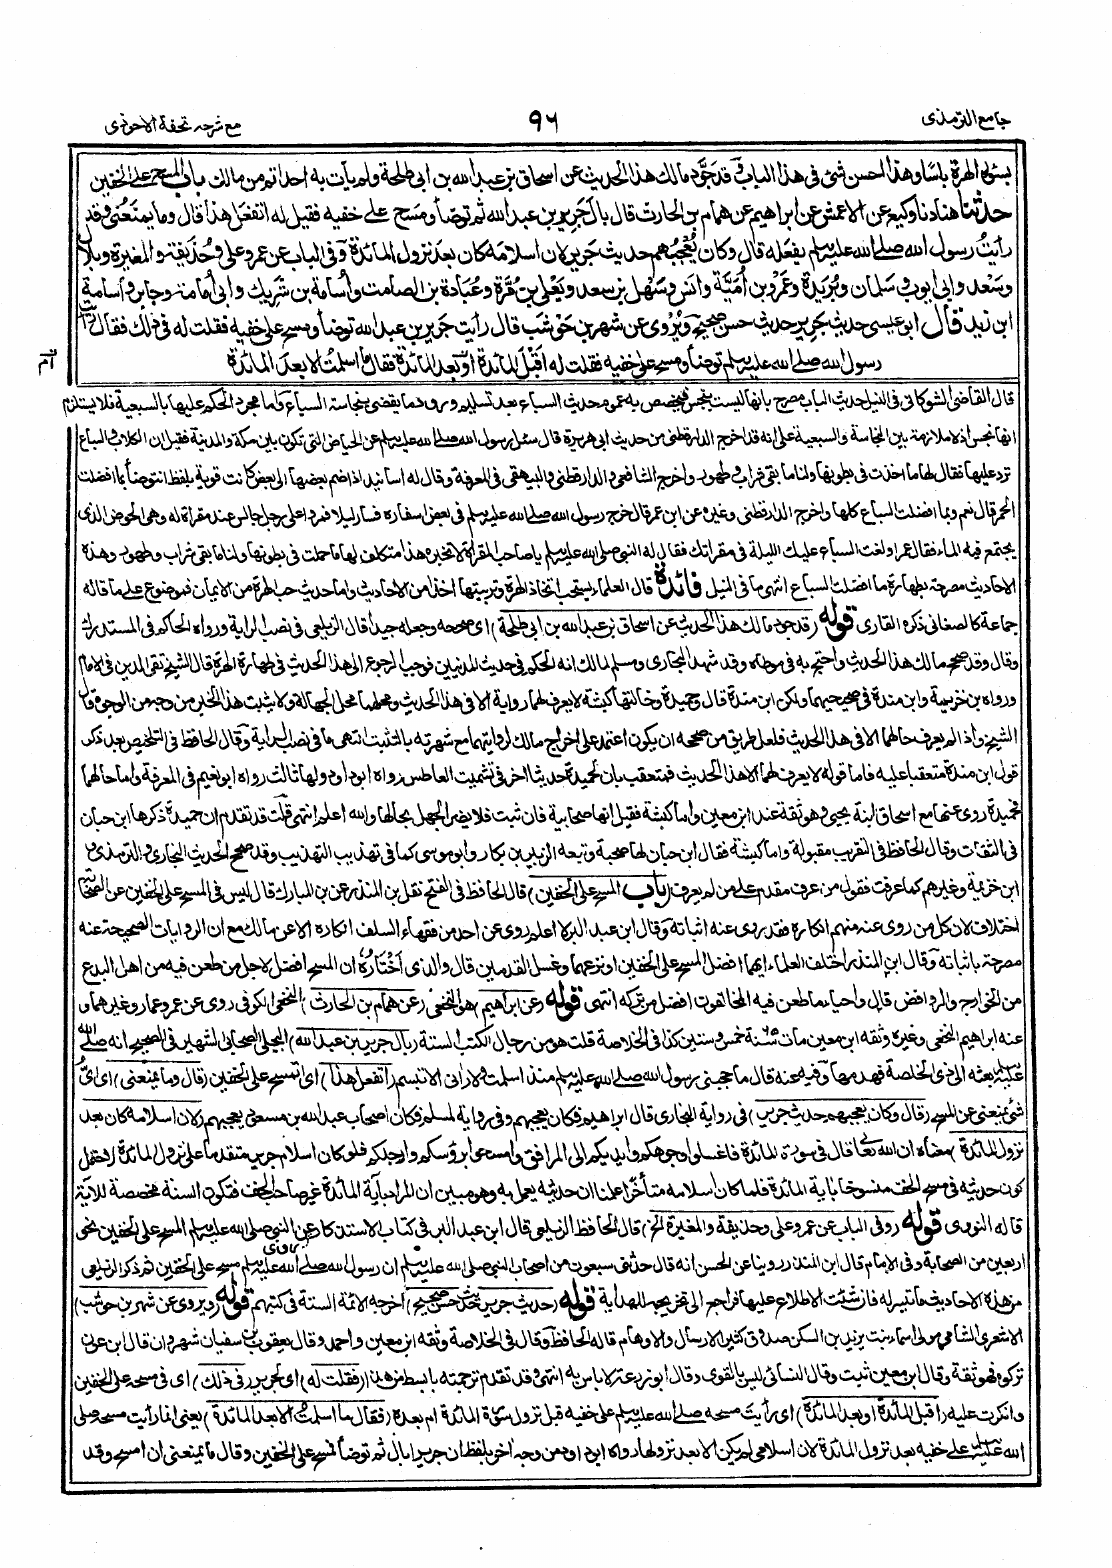 جامع الترمذى
٩٦
مع شرحه تحفة الاحوذى
بسؤر الهرة باسا وهذا احسن شئ فى هذا الباب وقد جوَّد مالك هذا الحديث عن اسحاق بن عبد الله بن ابى طلحة ولم يأت به احد اتم من مالك باب المسح على الخفين
حدثنا هناد نا وكيع عن الاعمش عن ابراهيم عن همام بن الحارث قال بال جرير بن عبد الله ثم توضأ ومسح على خفيه فقيل له اتفعل هذا قال وما يمنعنى وقد
رأيت رسول الله صلى الله عليه وسلم يفعله قال وكان يعجبهم حديث جرير لان اسلامه كان بعد نزول المائدة وفى الباب عن عمر وعلى وحذيفة والمغيرة وبلال
وسعد وابى ايوب وسلمان وبريدة وعمرو بن امية وانس وسهل بن سعد ويعلى بن مرة وعبادة بن الصامت وأسامة بن شريك وابى أمامة وجابر وأسامة
ابن زيد قال ابو عيسى حديث جرير حديث حسن صحيح ويروى عن شهر بن حوشب قال رأيت جرير بن عبد الله توضأ ومسح على خفيه فقلت له فى ذلك فقال رأيت
رسول الله صلى الله عليه وسلم توضأ ومسح على خفيه فقلت له أقبل المائدة او بعد المائدة فقال ما اسلمت الا بعد المائدة
قال القاضى الشوكانى فى النيل حديث الباب مصرح بانها ليست بنجس فيخصص به عموم حديث السباع بعد تسليم ورود ما يقضى بنجاسة السباع واما مجرد الحكم عليها بالسبعية فلا يستلزم
انها نجس اذ لا ملازمة بين النجاسة والسبعية على انه قد اخرج الدارقطنى من حديث ابى هريرة قال سئل رسول الله صلى الله عليه وسلم عن الحياض التى تكون بين مكة والمدينة فقيل ان الكلاب والسباع
ترد عليها فقال لها ما اخذت فى بطونها ولنا ما بقى شراب وطهور واخرج الشافعى والدارقطنى والبيهقى فى المعرفة وقال له اسانيد اذا ضم بعضها الى بعض كانت قوية بلفظ انتوضأ بما افضلت
الحمر قال نعم وبما افضلت السباع كلها واخرج الدارقطنى وغيره عن ابن عمر قال خرج رسول الله صلى الله عليه وسلم فى بعض اسفاره فسار ليلا فمروا على رجل جالس عند مقراة له وهى الحوض الذى
يجتمع فيه الماء فقال عمر اولغت السباع عليك الليلة فى مقراتك فقال له النبى صلى الله عليه وسلم يا صاحب المقراة لا تخبره هذا متكلف لها ما حملت فى بطونها ولنا ما بقى شراب وطهور وهذه
الاحاديث مصرحة بطهارة ما افضلت السباع انتهى ما فى النيل فائدة قال العلماء يستحب اتخاذ الهرة وتربيتها اخذا من الاحاديث واما حديث حب الهرة من الايمان فموضوع على ما قاله
جماعة كالصغانى ذكره القارى قوله (وقد جود مالك هذا الحديث عن اسحاق بن عبد الله بن ابى طلحة) اى صححه وجعله جيدا قال الزيلعى فى نصب الراية ورواه الحاكم فى المستدرك
وقال وقد صحح مالك هذا الحديث واحتج به فى موطاه وقد شهد البخارى ومسلم لمالك انه الحكم فى حديث المدنيين فوجب الرجوع الى هذا الحديث فى طهارة الهرة قال الشيخ تقى الدين فى الامام
ورواه بن خزيمة وابن مندة فى صحيحيهما ولكن ابن مندة قال وحميدة وخالتها كبشة لا يعرف لهما رواية الا فى هذا الحديث ومحلهما محل الجهالة ولا يثبت هذا الخبر من وجه من الوجوه قال
الشيخ واذا لم يعرف حالهما الا فى هذا الحديث فلعل طريق من صححه ان يكون اعتمد على اخراج مالك لروايتهما مع شهرته بالتثبت انتهى ما فى نصب الراية وقال الحافظ فى التلخيص بعد ذكر
قول ابن مندة متعقبا عليه فاما قوله لا يعرف لهما الا هذا الحديث فمتعقب بان لحميدة حديثا اخر فى تشميت العاطس رواه ابو داود ولها ثالث رواه ابو نعيم فى المعرفة واما حالهما
فحميدة روى عنها مع اسحاق ابنه يحيى وهو ثقة عند ابن معين واما كبشة فقيل انها صحابية فان ثبت فلا يضر الجهل بحالها والله اعلم انتهى قلت قد تقدم ان حميدة ذكرها ابن حبان
فى الثقات وقال الحافظ فى التقريب مقبولة واما كبشة فقال ابن حبان لها صحبة وتبعه الزبير بن بكار وابو موسى كما فى تهذيب التهذيب وقد صحح الحديث البخارى والترمذى و
ابن خزيمة وغيرهم كما عرفت فقول من عرف مقدم على من لم يعرف (باب المسح على الخفين) قال الحافظ فى الفتح نقل بن المنذر عن بن المبارك قال ليس فى المسح على الخفين عن الصحابة
اختلاف لان كل من روى عنه منهم انكاره فقد روى عنه اثباته وقال ابن عبد البر لا اعلم روى عن احد من فقهاء السلف انكاره الا عن مالك مع ان الروايات الصحيحة عنه
مصرحة باثباته وقال ابن المنذر اختلف العلماء ايهما افضل المسح على الخفين او نزعهما وغسل القدمين قال والذى أختاره ان المسح افضل لاجل من طعن فيه من اهل البدع
من الخوارج والروافض قال واحياء ما طعن فيه المخالفون افضل من تركه انتهى قوله (عن ابراهيم) هو النخعى (عن همام بن الحارث) النخعى الكوفى روى عن عمر وعمار وغيرهما و
عنه ابراهيم النخعى وغيره وثقه ابن معين مات سنة ٦٥ خمس وستين كذا فى الخلاصة قلت هو من رجال الكتب الستة (بال جرير بن عبد الله) البجلى الصحابى الشهير فى الصحيح انه صلى الله
عليه وسلم بعثه الى ذى الخلصة فهدمها وفيه عنه قال ما حجبنى رسول الله صلى الله عليه وسلم منذ اسلمت ولا رآنى الا تبسم (أتفعل هذا) اى تمسح على الخفين (قال وما يمنعنى) اى اىّ
شئ يمنعنى عن المسح (قال وكان يعجبهم حديث جرير) فى رواية البخارى قال ابراهيم فكان يعجبهم وفى رواية لمسلم فكان اصحاب عبد الله بن مسعود يعجبهم (لان اسلامه كان بعد
نزول المائدة) معناه ان الله تعالى قال فى سورة المائدة فاغسلوا وجوهكم وايديكم الى المرافق وامسحوا برؤسكم وارجلكم فلو كان اسلام جرير متقدما على نزول المائدة لاحتمل
كون حديثه فى مسح الخف منسوخا باية المائدة فلما كان اسلامه متأخرا علمنا ان حديثه يعمل به وهو مبين ان المراد باية المائدة غير صاحب الخف فتكون السنة مخصصة للاية
قاله النووى قوله (وفى الباب عن عمر وعلى وحذيفة والمغيرة الخ) قال الحافظ الزيلعى قال ابن عبد البر فى كتاب الاستذكار روى عن النبى صلى الله عليه وسلم المسح على الخفين نحو
اربعين من الصحابة وفى الامام قال ابن المنذر روينا عن الحسن انه قال حدثنى سبعون من اصحاب النبى صلى الله عليه وسلم ان رسول الله صلى الله عليه وسلم مسح على الخفين ثم ذكر الزيلعى
من هذه الاحاديث ما تيسر له فان شئت الاطلاع عليها فراجع الى تخريجه للهداية قوله (حديث جرير حديث حسن صحيح) اخرجه الائمة الستة فى كتبهم قوله (ويروى عن شهر بن حوشب)
الاشعرى الشامى مولى اسماء بنت يزيد بن السكن صدوق كثير الارسال والاوهام قاله الحافظ وقال فى الخلاصة وثقه ابن معين واحمد وقال يعقوب بن سفيان شهر وان قال ابن عون
تركوه فهو ثقة وقال ابن معين ثبت وقال النسائى ليس بالقوى وقال ابو زرعة لا باس به انتهى وقد تقدم ترجمته بابسط من هذا (فقلت له) اى لجرير (فى ذلك) اى فى مسحه على الخفين
وانكرت عليه (اقبل المائدة او بعد المائدة) اى رأيت مسحه صلى الله عليه وسلم على خفيه قبل نزول سورة المائدة ام بعده (فقال ما اسلمت الا بعد المائدة) يعنى انما رأيت مسحه صلى
الله عليه وسلم على خفيه بعد نزول المائدة لان اسلامى لم يكن الا بعد نزولها ورواه ابو داود من وجه اخر بلفظ ان جريرا بال ثم توضأ فمسح على الخفين وقال ما يمنعنى ان امسح وقد